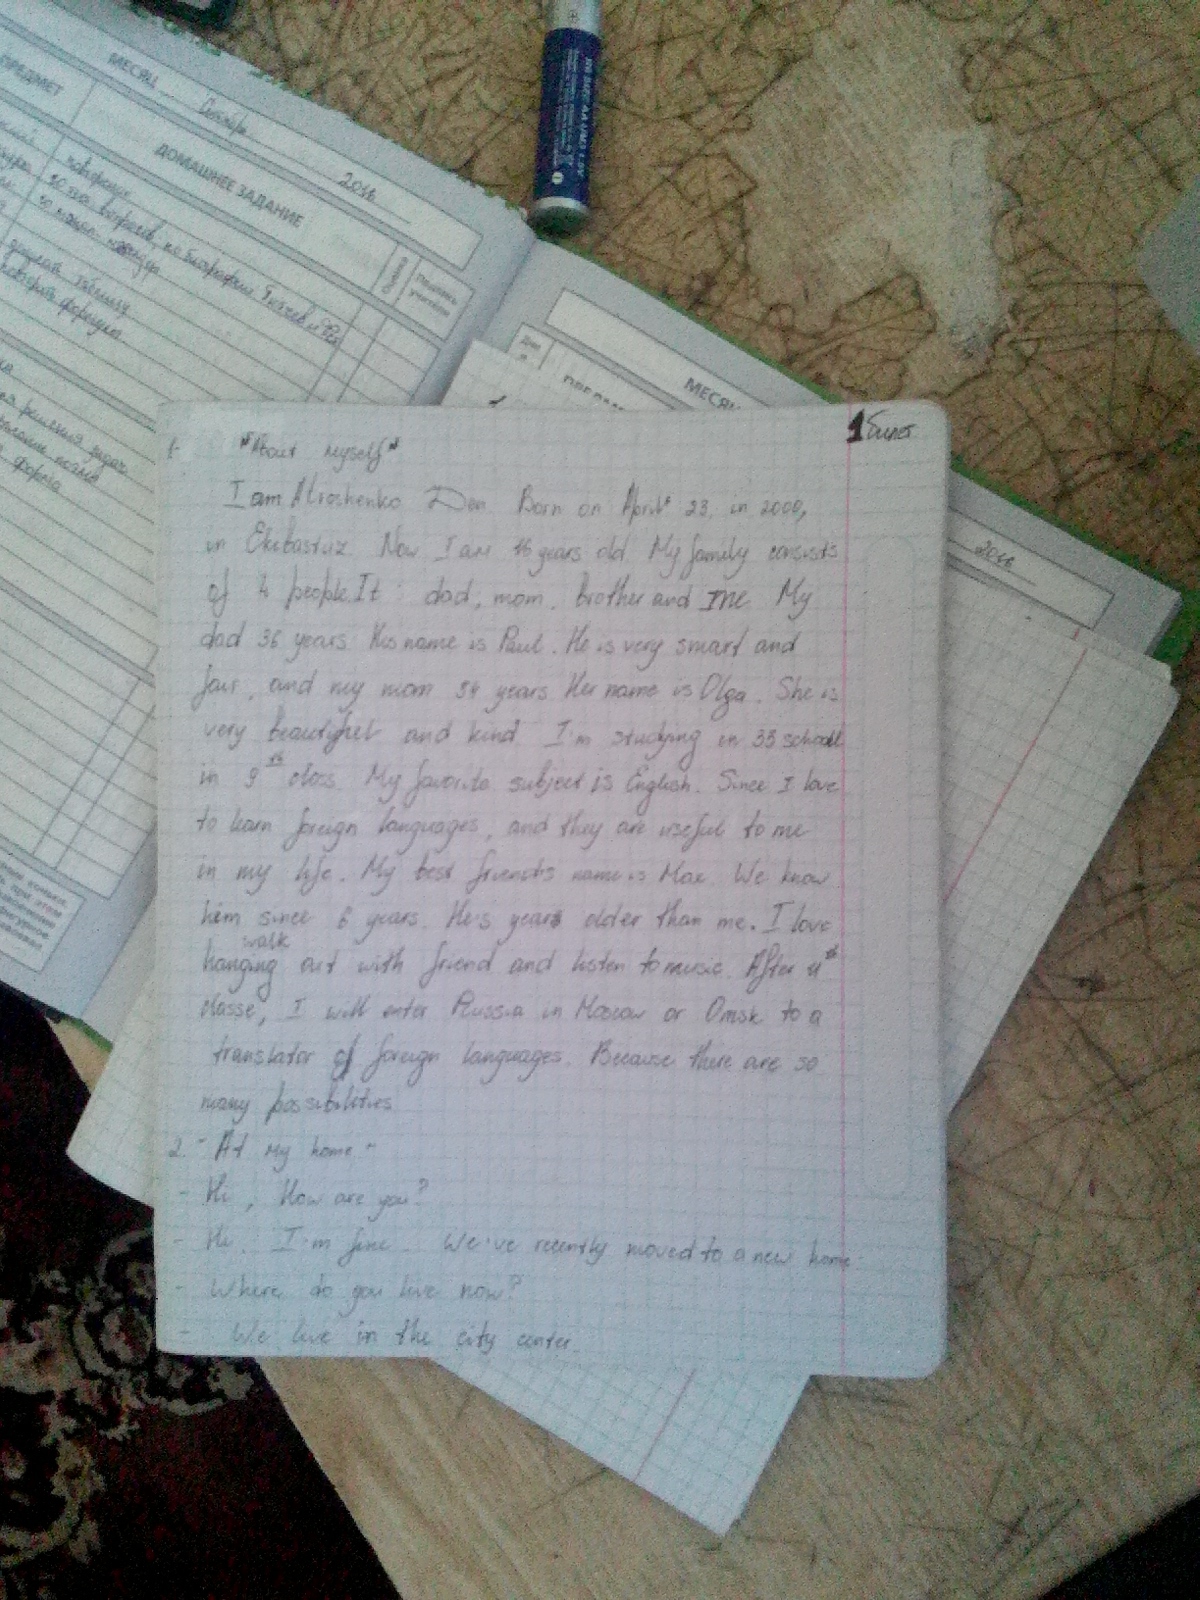 МЕСЯЦ Октябрь 2016
ПРЕДМЕТ
ДОМАШНЕЕ ЗАДАНИЕ
Оценка
Подпись учителя
МЕСЯЦ
2016
1 билет
1. "About myself"
I am Miroshenko Den. Born on April 23, in 2000,
in Ekibastuz. Now I am 16 years old. My family consists
of 4 people It: dad, mom, brother and me. My
dad 36 years. His name is Paul. He is very smart and
fair, and my mom 34 years. Her name is Olga. She is
very beautiful and kind. I'm studying in 33 school
in 9th class. My favorite subject is English. Since I love
to learn foreign languages, and they are useful to me
in my life. My best friend's name is Max. We know
him since 6 years. He's years older than me. I love
walk
hanging out with friend and listen to music. After 11th
classe, I will enter Russia in Moscow or Omsk to a
translator of foreign languages. Because there are so
many possibilities
2. "At my home"
- Hi, How are you?
- Hi. I'm fine. We've recently moved to a new home.
- Where do you live now?
- We live in the city center.